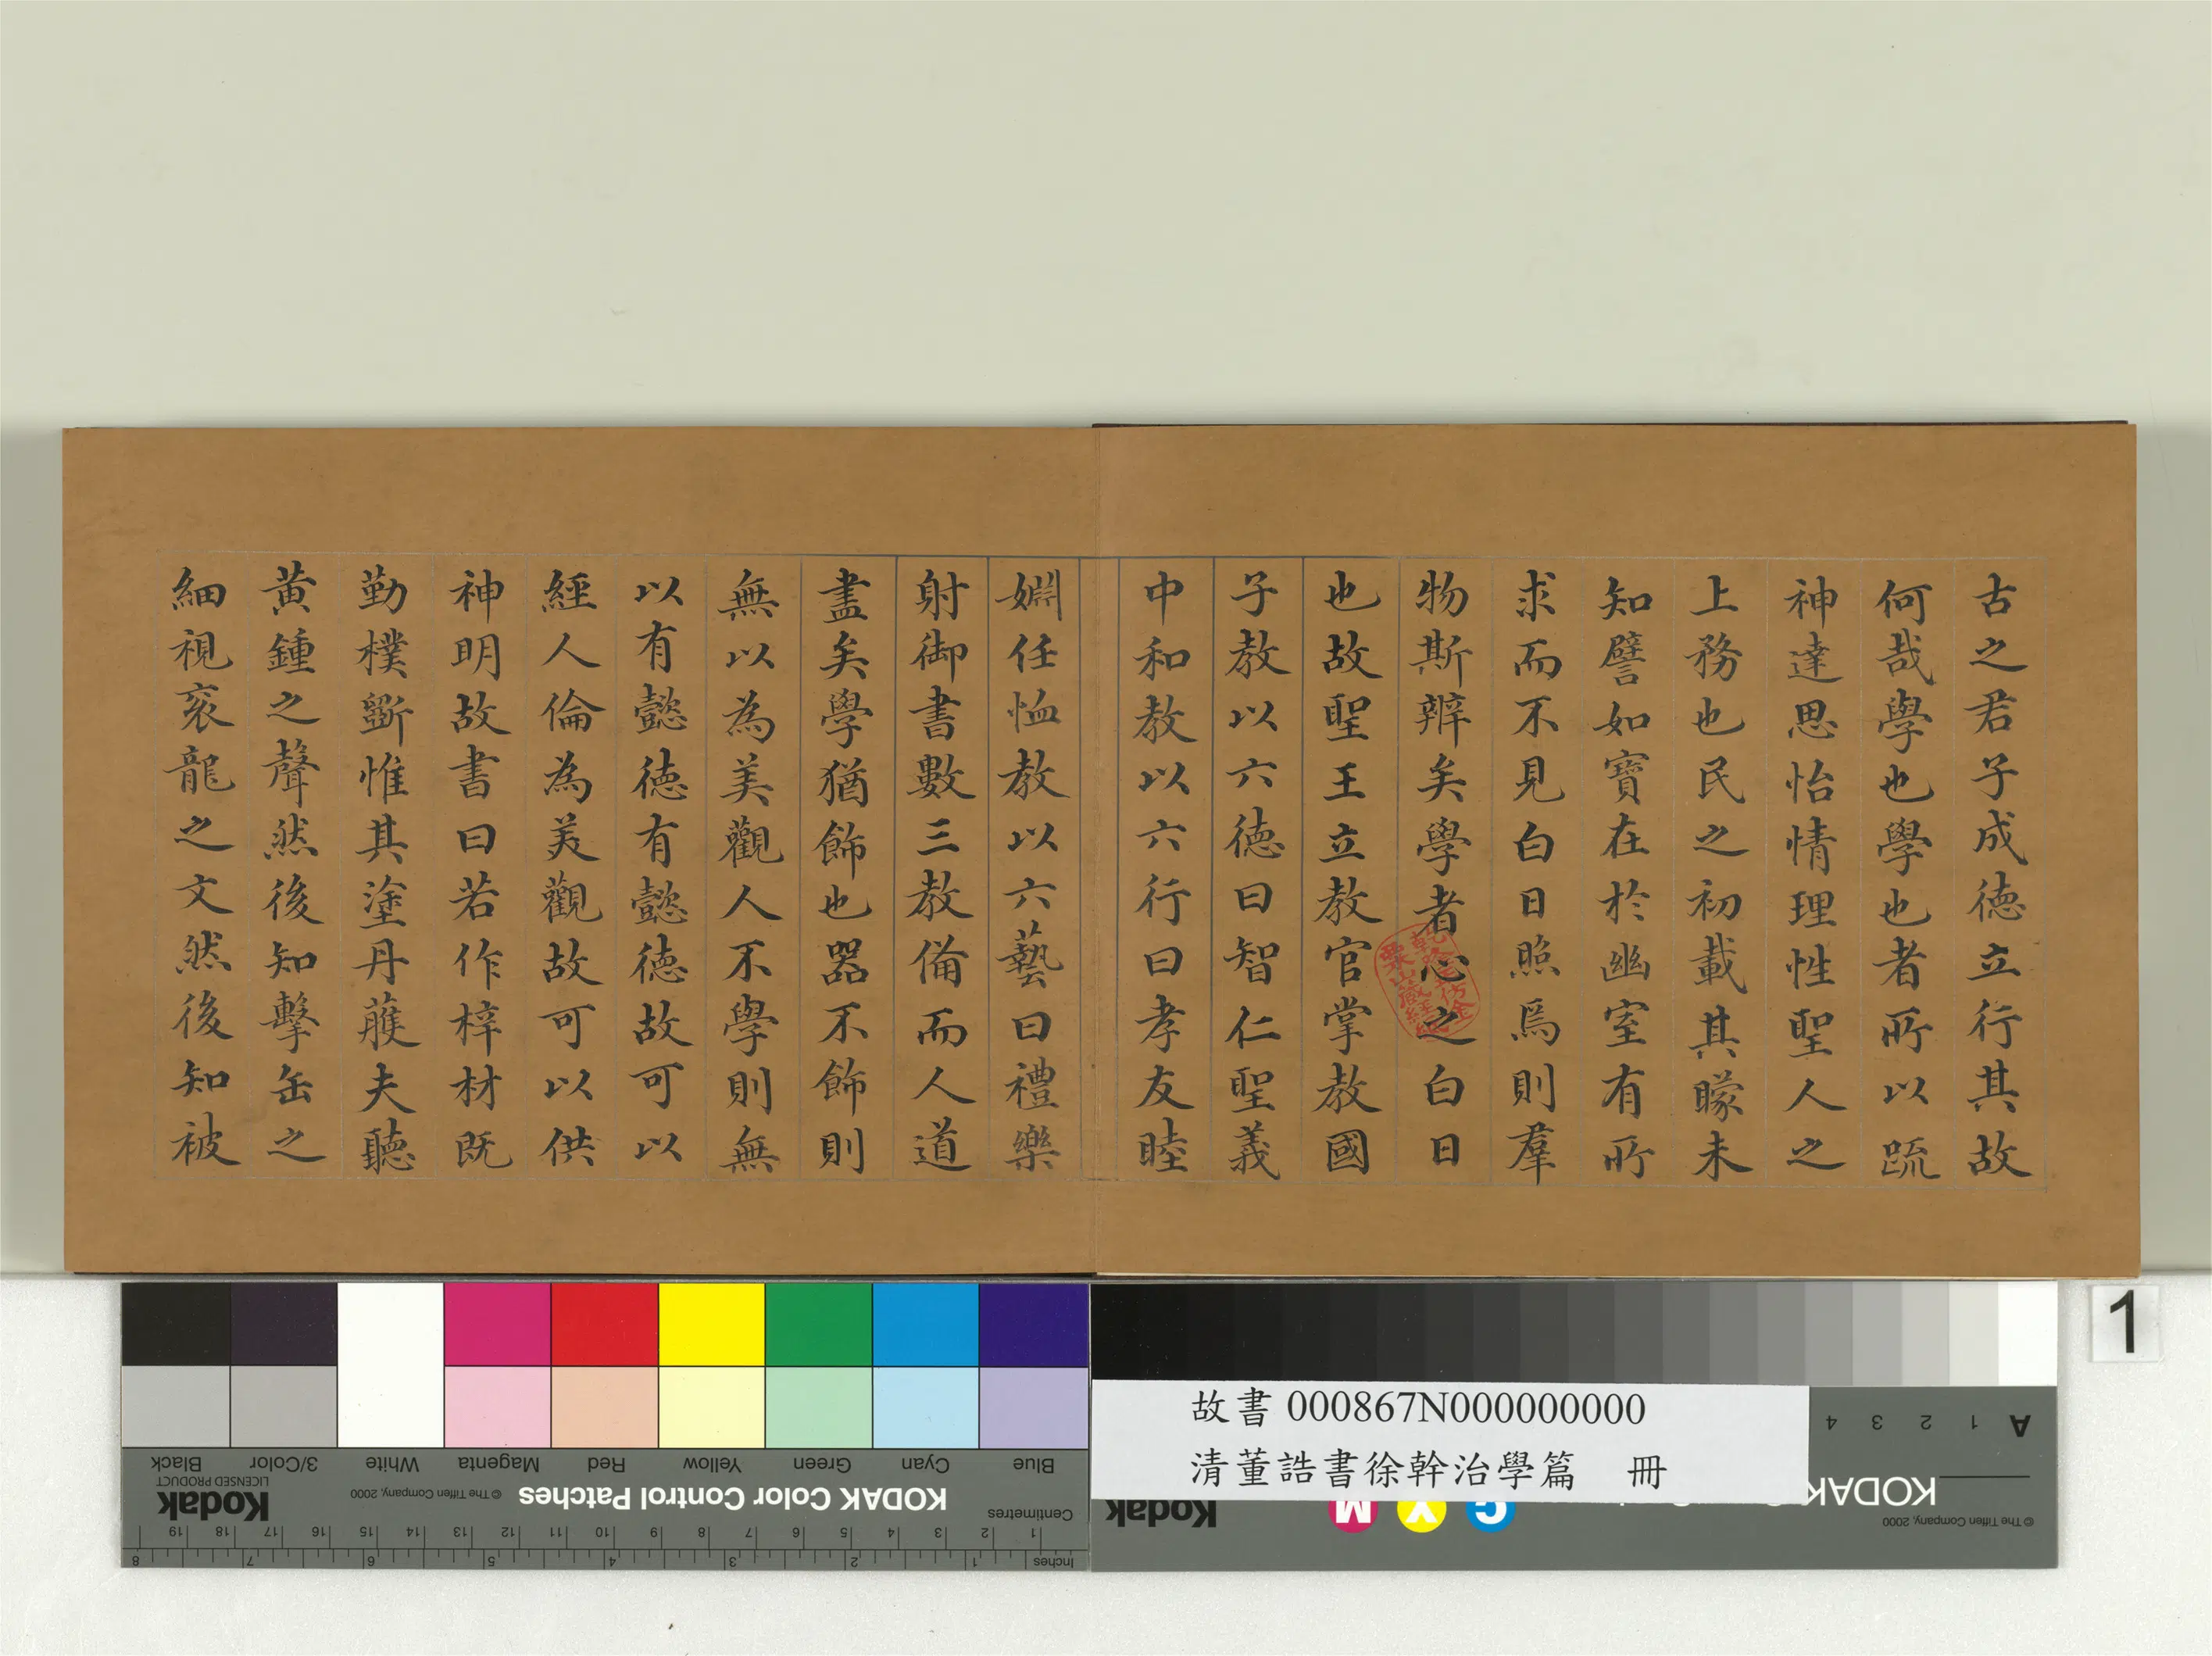 古之君子成徳立行其故
何哉學也學也者所以䟽
神達思怡情理性聖人之
上務也民之初載其矇未
知譬如寶在於幽室有所
求而不見白日照焉則羣
物斯辨矣學者心之白日
也故聖王立教官掌教國
子教以六徳曰智仁聖義
中和教以六行曰孝友睦
婣任恤教以六藝曰禮樂
射御書數三教備而人道
盡矣學猶飾也器不飾則
無以為美觀人不學則無
以有懿徳有懿徳故可以
經人倫為美觀故可以供
神明故書曰若作梓材既
勤樸斲惟其塗丹雘夫聽
黄鍾之聲然後知擊缶之
細視衮龍之文然後知被
乾隆年仿金
粟山藏經紙
1
故書 000867N000000000
清董誥書徐幹治學篇 冊
Blue Cyan Green Yellow Red Magenta White 3/Color Black
Centimetres
KODAK Color Control Patches
© The Tiffen Company, 2000
Kodak
LICENSED PRODUCT
1 2 3 4 5 6 7 8 9 10 11 12 13 14 15 16 17 18 19
Inches
1 2 3 4 5 6 7 8
A 1 2 3 4
KODAK
© The Tiffen Company, 2000
C Y M
Kodak